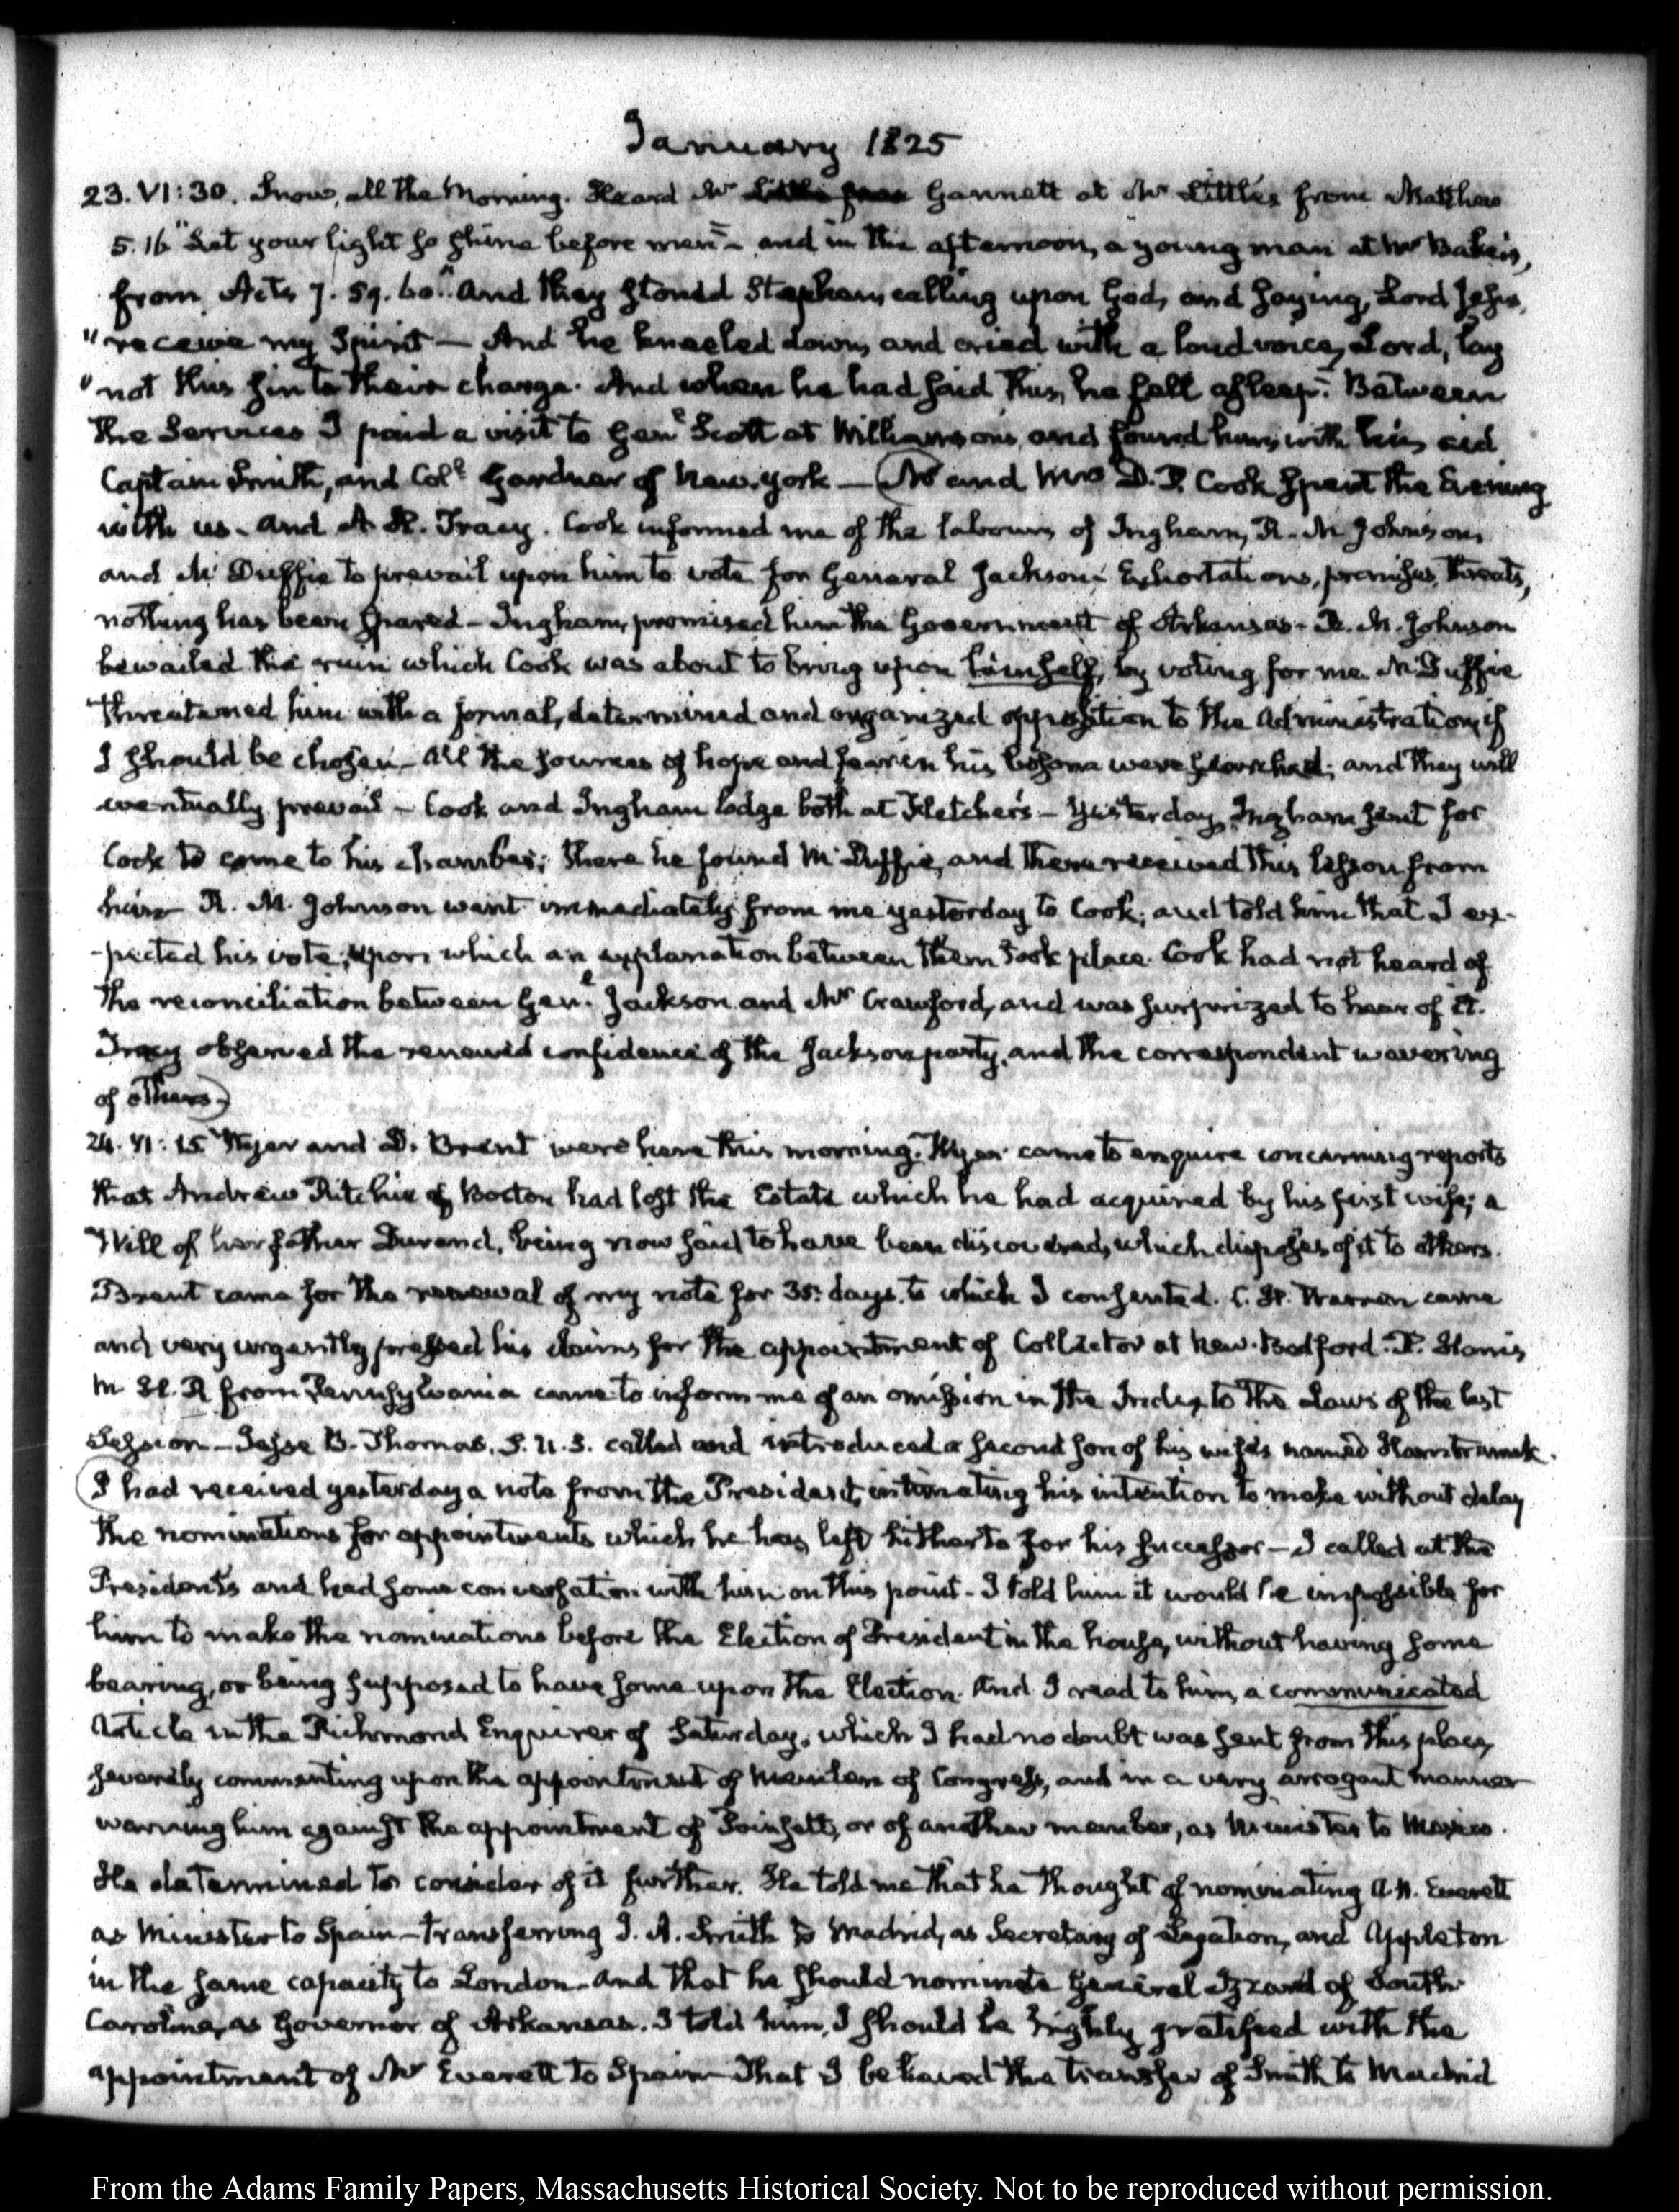 January 1825
23. VI: 30. Snow, all the Morning. Heard Mr Gannett at Mr Little's from Matthew
5. 16 "Let your light so shine before men"— and in the afternoon, a young man at Mr Baker's,
from Acts 7. 59. 60. "And they stoned Stephen, calling upon God, and saying, Lord Jesus,
"receive my Spirit — And he kneeled down, and cried with a loud voice, Lord, lay
"not this sin to their charge. And when he had said this, he fell asleep." Between
the Services I paid a visit to Genl Scott at Williamson's, and found him, with his aid
Captain Smith, and Coll Gardner of New-York — (Mr and Mrs D. P. Cook spent the Evening
with us. and A. H. Tracy. Cook informed me of the labours of Ingham, R. M. Johnson,
and McDuffie to prevail upon him to vote for General Jackson. Exhortations, promises, threats,
nothing has been spared — Ingham, promised him the Government of Arkansas — R. M. Johnson
bewailed the ruin which Cook was about to bring upon himself, by voting for me. McDuffie
threatened him with a formal, determined and organized opposition to the Administration, if
I should be chosen — All the sources of hope and fear in his bosom were searched; and they will
eventually prevail — Cook and Ingham lodge both at Fletcher's — Yesterday, Ingham sent for
Cook to come to his chamber; there he found McDuffie, and there received this lesson from
him — R. M. Johnson went immediately from me yesterday to Cook; and told him that I ex-
-pected his vote; upon which an explanation between them took place. Cook had not heard of
the reconciliation between Genl Jackson and Mr Crawford, and was surprized to hear of it.
Tracy observed the renewed confidence of the Jackson party, and the correspondent wavering
of others.)
24. VI: 15. Wyer and D. Brent were here this morning. Wyer came to enquire concerning reports
that Andrew Ritchie of Boston had lost the Estate which he had acquired by his first wife; a
Will of her father Durand, being now said to have been discovered, which disposes of it to others.
Brent came for the renewal of my note for 35 days, to which I consented. C. H. Warren came
and very urgently pressed his claims for the appointment of Collector at New-Bedford. P.
M. H. R from Pennsylvania came to inform me of an omission in the Index to the Laws of the last
Session — Jesse B. Thomas. S. U. S. called and introduced a second son of his wife's named Hamtramck.
(I had received yesterday a note from the President, intimating his intention to make without delay
the nominations for appointments which he has left hitherto for his successor — I called at the
President's and had some conversation with him on this point — I told him it would be impossible for
him to make the nominations before the Election of President in the house, without having some
bearing, or being supposed to have some upon the Election. And I read to him, a communicated
Article in the Richmond Enquirer of Saturday, which I had no doubt was sent from this place,
severely commenting upon the appointment of Members of Congress, and in a very arrogant manner
warning him against the appointment of Poinsett, or of another member, as Minister to Mexico.
He determined to consider of it further. He told me that he thought of nominating A. H. Everett
as Minister to Spain — transferring J. A. Smith to Madrid, as Secretary of Legation, and Appleton
in the same capacity to London — and that he should nominate General Izzard of South
Carolina, as Governor of Arkansas. I told him, I should be highly gratified with the
appointment of Mr Everett to Spain — That I believed the transfer of Smith to Madrid
From the Adams Family Papers, Massachusetts Historical Society. Not to be reproduced without permission.